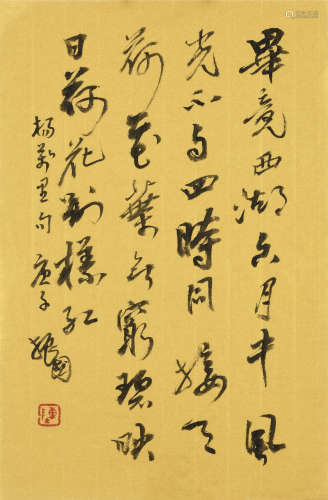 畢竟西湖六月中風
光不与四時同接天
荷花葉无窮碧映
日荷花别樣红
楊萬里句 庚子